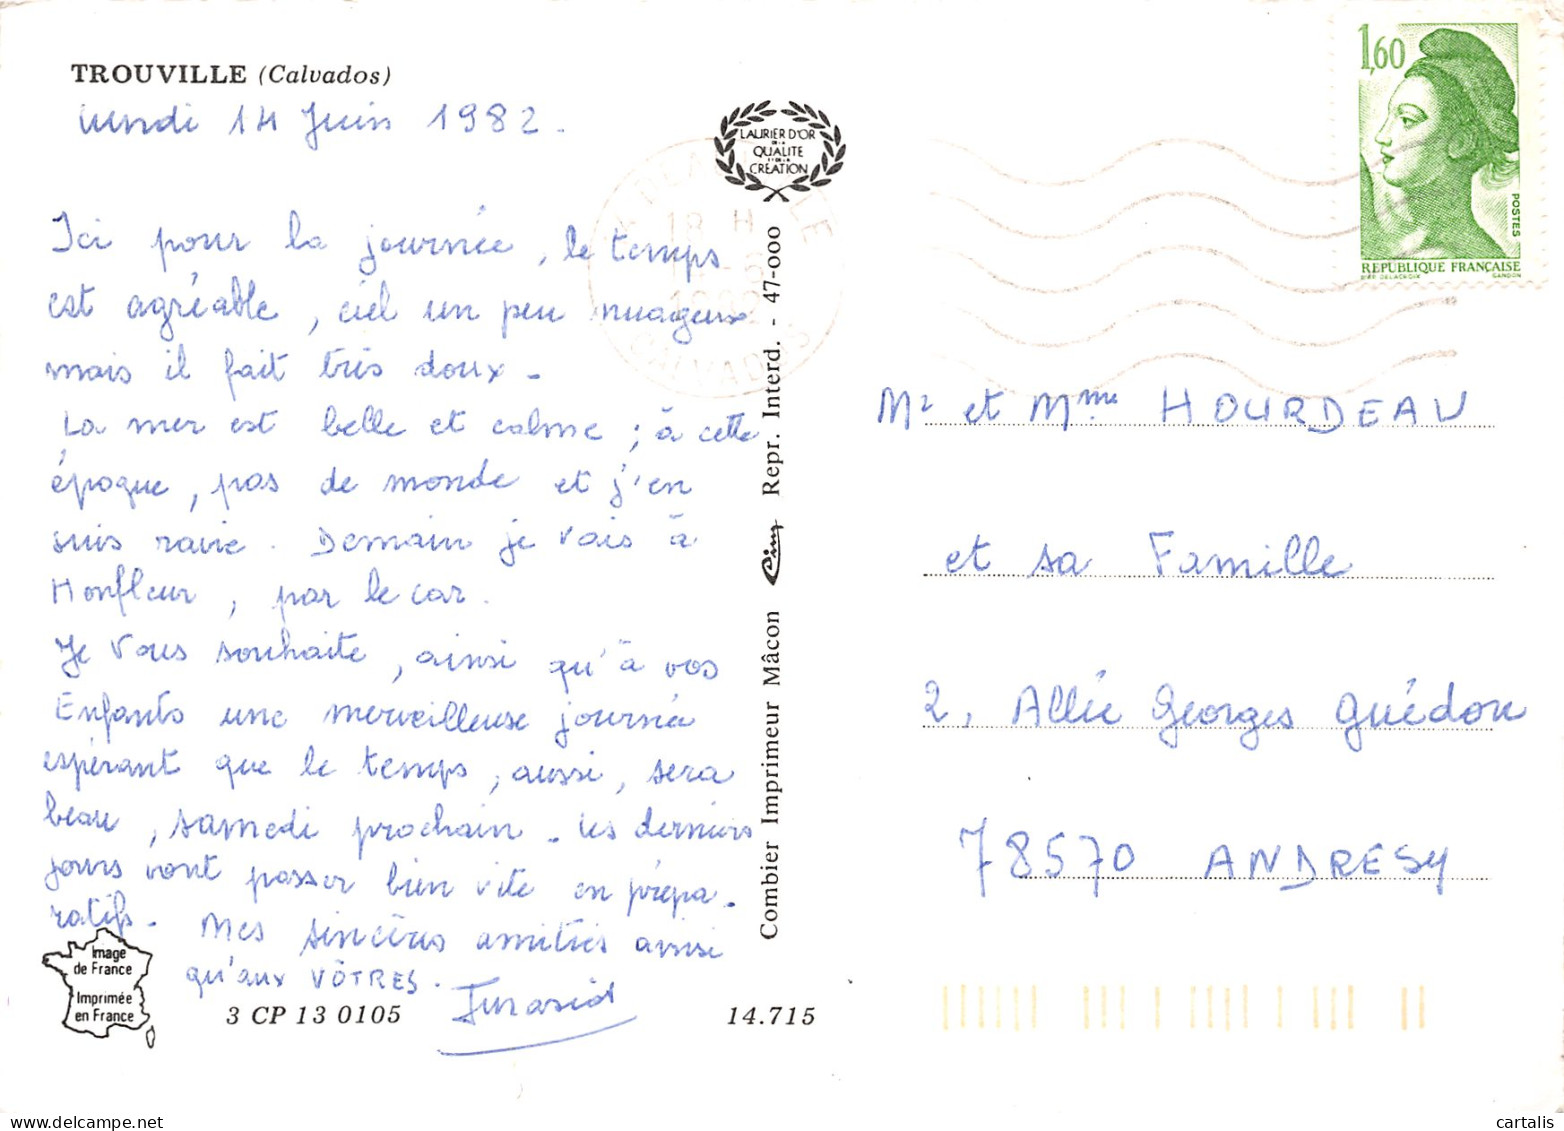 TROUVILLE (Calvados)
lundi 14 Juin 1982.
Ici pour la journée, le temps
est agréable, ciel un peu nuageux
mais il fait très doux.
La mer est belle et calme ; à cette
époque, pas de monde et j'en
suis ravie. Demain je vais à
Honfleur, par le car.
Je vous souhaite, ainsi qu'à vos
Enfants une merveilleuse journée
espérant que le temps, aussi, sera
beau, samedi prochain. Les derniers
jours vont passer bien vite en prépa-
ratifs. Mes sincères amitiés ainsi
qu'aux VÔTRES.
Image
de France
Imprimée
en France
3 CP 13 0105
14.715
LAURIER D'OR
DE LA
QUALITE
ET DE LA
CREATION
Combier Imprimeur Mâcon Cim Repr. Interd. - 47-000
18 H
CALVADOS
1,60
POSTES
REPUBLIQUE FRANÇAISE
D'AP. DELACROIX GANDON
Mr et Mme HOURDEAU
et sa Famille
2, Allée Georges Guédon
78570 ANDRESY
cartalis